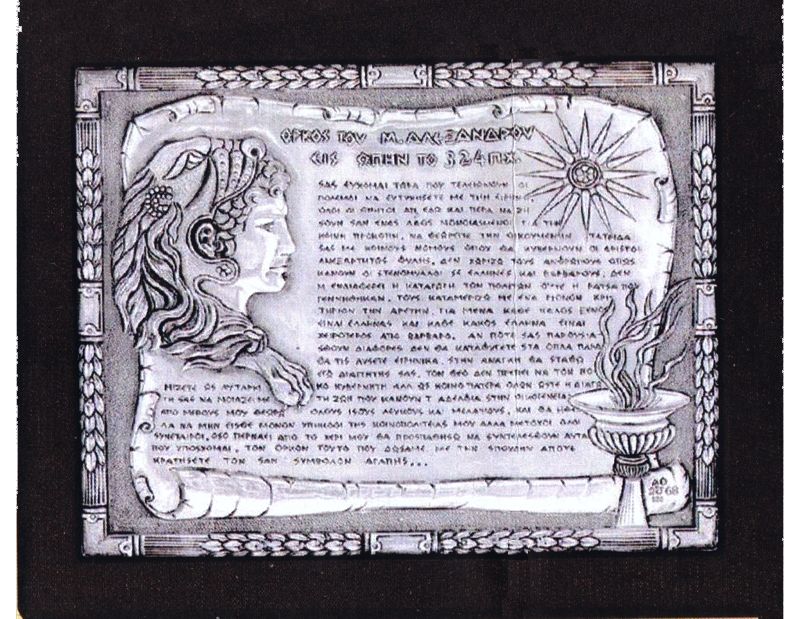 ΟΡΚΟΣ ΤΟΥ Μ. ΑΛΕΞΑΝΔΡΟΥ
ΕΙΣ ΩΠΗΝ ΤΟ 324 Π.Χ.
ΣΑΣ ΕΥΧΟΜΑΙ ΤΩΡΑ ΠΟΥ ΤΕΛΕΙΩΝΟΥΝ ΟΙ
ΠΟΛΕΜΟΙ ΝΑ ΕΥΤΥΧΗΣΕΤΕ ΜΕ ΤΗΝ ΕΙΡΗΝΗ.
ΟΛΟΙ ΟΙ ΘΝΗΤΟΙ ΑΠ ΕΔΩ ΚΑΙ ΠΕΡΑ ΝΑ ΖΗ
ΣΟΥΝ ΣΑΝ ΕΝΑΣ ΛΑΟΣ ΜΟΝΟΙΑΣΜΕΝΟΙ ΓΙΑ ΤΗΝ
ΚΟΙΝΗ ΠΡΟΚΟΠΗ. ΝΑ ΘΕΩΡΕΙΤΕ ΤΗΝ ΟΙΚΟΥΜΕΝΗΝ ΠΑΤΡΙΔΑ
ΣΑΣ ΜΕ ΚΟΙΝΟΥΣ ΝΟΜΟΥΣ ΟΠΟΥ ΘΑ ΚΥΒΕΡΝΟΥΝ ΟΙ ΑΡΙΣΤΟΙ
ΑΝΕΞΑΡΤΗΤΩΣ ΦΥΛΗΣ. ΔΕΝ ΧΩΡΙΖΩ ΤΟΥΣ ΑΝΘΡΩΠΟΥΣ ΟΠΩΣ
ΚΑΝΟΥΝ ΟΙ ΣΤΕΝΟΜΥΑΛΟΙ ΣΕ ΕΛΛΗΝΕΣ ΚΑΙ ΒΑΡΒΑΡΟΥΣ. ΔΕΝ
ΜΕ ΕΝΔΙΑΦΕΡΕΙ Η ΚΑΤΑΓΩΓΗ ΤΩΝ ΠΟΛΙΤΩΝ ΟΥΤΕ Η ΡΑΤΣΑ ΠΟΥ
ΓΕΝΝΗΘΗΚΑΝ. ΤΟΥΣ ΚΑΤΑΜΕΡΙΖΩ ΜΕ ΕΝΑ ΜΟΝΟΝ ΚΡΙ
ΤΗΡΙΟΝ ΤΗΝ ΑΡΕΤΗΝ. ΓΙΑ ΜΕΝΑ ΚΑΘΕ ΚΑΛΟΣ ΞΕΝΟΣ
ΕΙΝΑΙ ΕΛΛΗΝΑΣ ΚΑΙ ΚΑΘΕ ΚΑΚΟΣ ΕΛΛΗΝΑ ΕΙΝΑΙ
ΧΕΙΡΟΤΕΡΟΣ ΑΠΟ ΒΑΡΒΑΡΟ. ΑΝ ΠΟΤΕ ΣΑΣ ΠΑΡΟΥΣΙΑ
ΣΘΟΥΝ ΔΙΑΦΟΡΕΣ ΔΕΝ ΘΑ ΚΑΤΑΦΥΓΕΤΕ ΣΤΑ ΟΠΛΑ ΠΑΡΑ
ΘΑ ΤΙΣ ΛΥΣΕΤΕ ΕΙΡΗΝΙΚΑ. ΣΤΗΝ ΑΝΑΓΚΗ ΘΑ ΣΤΑΘΩ
ΕΓΩ ΔΙΑΙΤΗΤΗΣ ΣΑΣ. ΤΟΝ ΘΕΟ ΔΕΝ ΠΡΕΠΕΙ ΝΑ ΤΟΝ ΝΟ
ΜΙΖΕΤΕ ΩΣ ΑΥΤΑΡΧΙ ΚΟ ΚΥΒΕΡΝΗΤΗ ΑΛΛ ΩΣ ΚΟΙΝΟ ΠΑΤΕΡΑ ΟΛΩΝ ΩΣΤΕ Η ΔΙΑΓΩ
ΓΗ ΣΑΣ ΝΑ ΜΟΙΑΖΕΙ ΜΕ ΤΗ ΖΩΗ ΠΟΥ ΚΑΝΟΥΝ Τ ΑΔΕΛΦΙΑ ΣΤΗΝ ΟΙΚΟΓΕΝΕΙΑ
ΑΠΟ ΜΕΡΟΥΣ ΜΟΥ ΘΕΩΡΩ ΟΛΟΥΣ ΙΣΟΥΣ ΛΕΥΚΟΥΣ ΚΑΙ ΜΕΛΑΨΟΥΣ. ΚΑΙ ΘΑ ΗΘΕ
ΛΑ ΝΑ ΜΗΝ ΕΙΣΘΕ ΜΟΝΟΝ ΥΠΗΚΟΟΙ ΤΗΣ ΚΟΙΝΟΠΟΛΙΤΕΙΑΣ ΜΟΥ ΑΛΛΑ ΜΕΤΟΧΟΙ ΟΛΟΙ
ΣΥΝΕΤΑΙΡΟΙ. ΟΣΟ ΠΕΡΝΑΕΙ ΑΠΟ ΤΟ ΧΕΡΙ ΜΟΥ ΘΑ ΠΡΟΣΠΑΘΗΣΩ ΝΑ ΣΥΝΤΕΛΕΣΘΟΥΝ ΑΥΤΑ
ΠΟΥ ΥΠΟΣΧΟΜΑΙ. ΤΟΝ ΟΡΚΟΝ ΤΟΥΤΟ ΠΟΥ ΔΩΣΑΜΕ ΜΕ ΤΗΝ ΣΠΟΝΔΗΝ ΑΠΟΨΕ
ΚΡΑΤΗΣΕΤΕ ΤΟΝ ΣΑΝ ΣΥΜΒΟΛΟΝ ΑΓΑΠΗΣ...